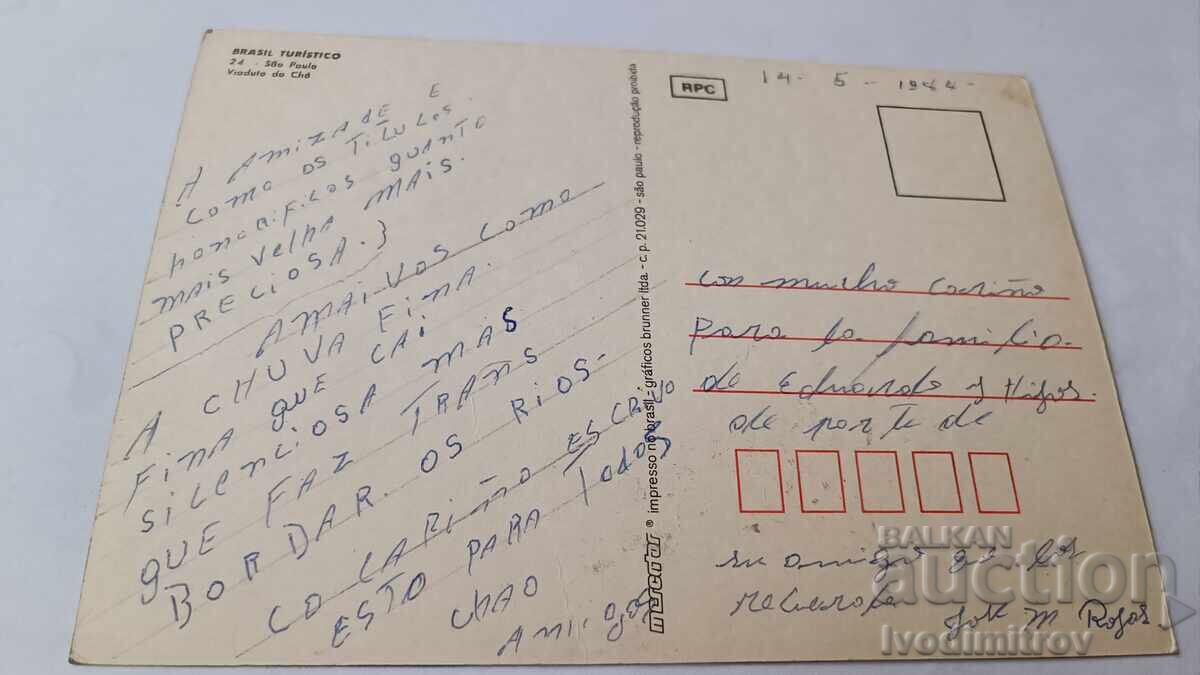 BRASIL TURÍSTICO
24 - São Paulo
Viaduto do Chá
A AMIZADE E
COMO OS TITULOS
honorificos QUANTO
MAIS VELHA MAIS.
PRECIOSA.}
AMAIVOS COMO
A CHUVA FINA.
FINA QUE CAI
SILENCIOSA MAS
QUE FAZ TRANS
BORDAR OS RIOS-
CO CARIÑO ESCRIVO
ESTO PARA TODOS
CHAO
AMIGOS
mercator ® impresso no brasil - gráficos brunner ltda. - c. p. 21.029 - são paulo - reprodução proibida
RPC
14- 5 --
con mucho cariño
Para la familia.
de Eduardo y Hijos.
de parte de
su amigo que los
José M Rojas.
BALKAN
auction
Ivodimitrov